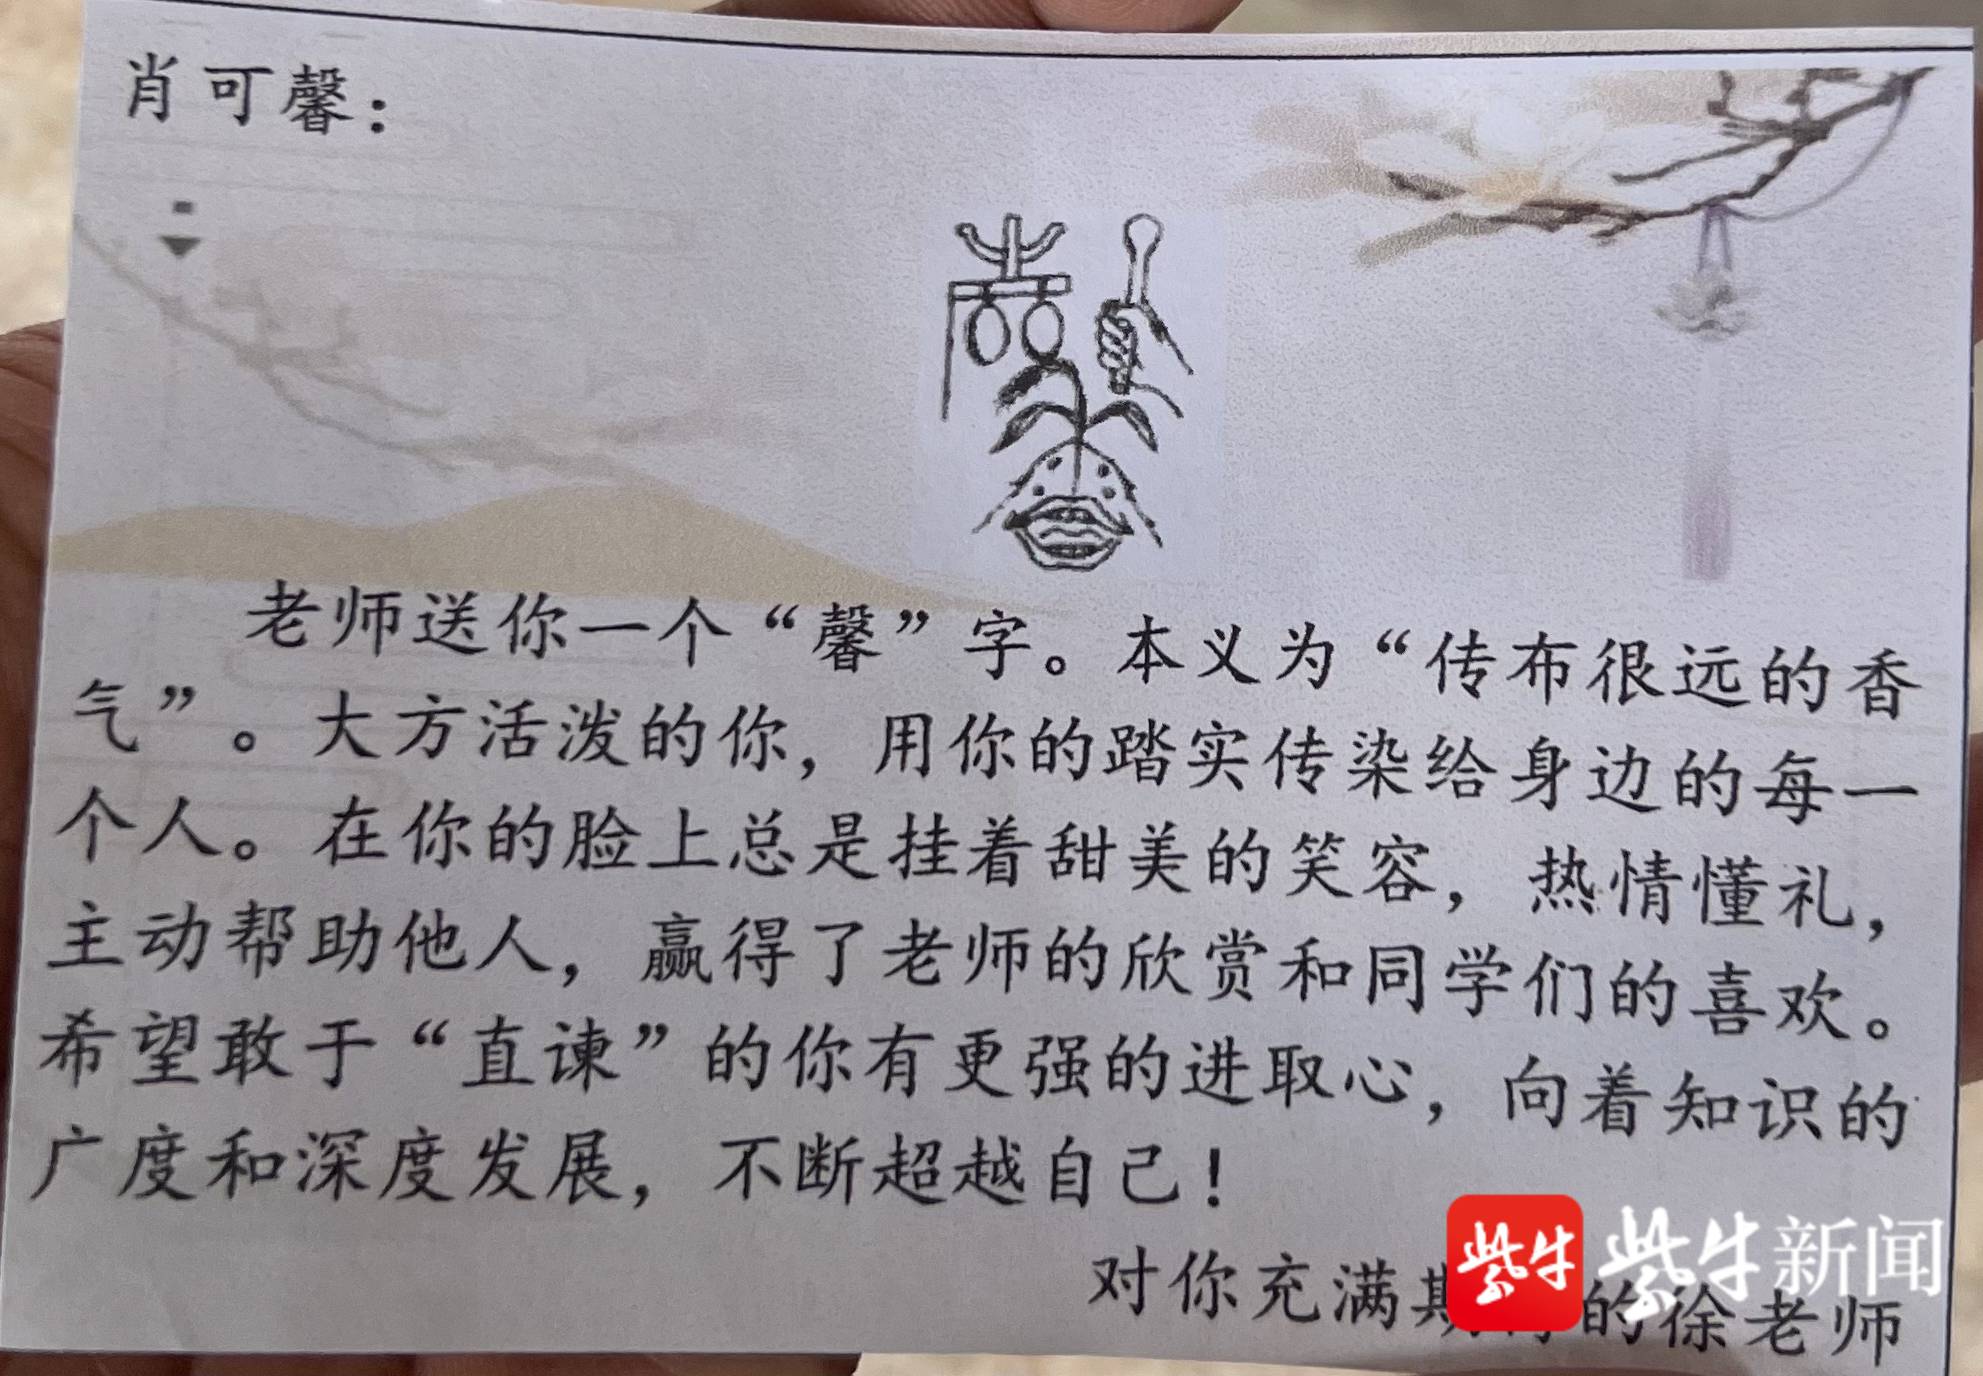 肖可馨：
老师送你一个“馨”字。本义为“传布很远的香
气”。大方活泼的你，用你的踏实传染给身边的每一
个人。在你的脸上总是挂着甜美的笑容，热情懂礼，
主动帮助他人，赢得了老师的欣赏和同学们的喜欢。
希望敢于“直谏”的你有更强的进取心，向着知识的
广度和深度发展，不断超越自己！
对你充满 的徐老师
紫牛 紫牛新闻